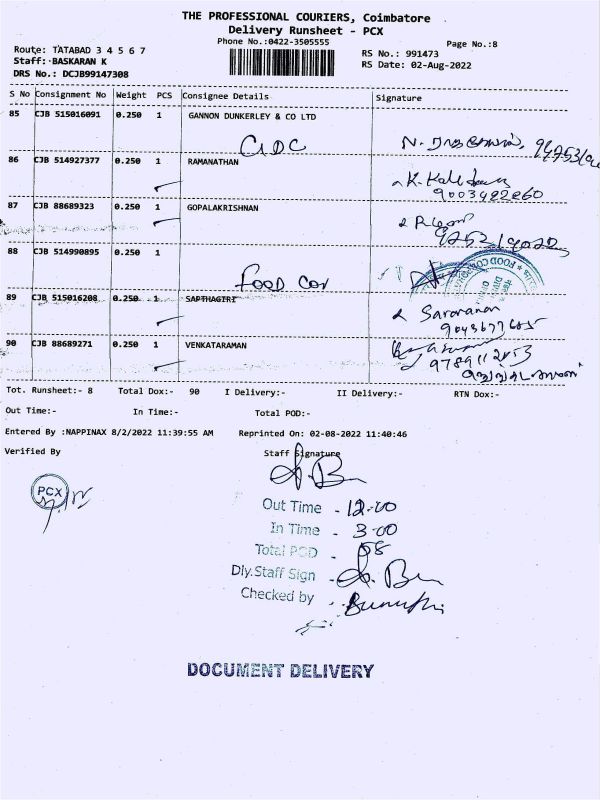 THE PROFESSIONAL COURIERS, Coimbatore
Delivery Runsheet - PCX
Phone No.:0422-3505555
Page No.:8
Route: TATABAD 3 4 5 6 7
RS No.: 991473
Staff: BASKARAN K
RS Date: 02-Aug-2022
DRS No.: DCJB99147308
S No Consignment No Weight PCS Consignee Details Signature
85 CJB 515016091 0.250 1 GANNON DUNKERLEY & CO LTD
86 CJB 514927377 0.250 1 RAMANATHAN
9003492260
87 CJB 88689323 0.250 1 GOPALAKRISHNAN
88 CJB 514990895 0.250 1
FOOD COR
89 CJB 515016208 0.250 1 SAPTHAGIRI
Saravanan
9043677685
90 CJB 88689271 0.250 1 VENKATARAMAN
9789112153
Tot. Runsheet:- 8 Total Dox:- 90 I Delivery:- II Delivery:- RTN Dox:-
Out Time:- In Time:- Total POD:-
Entered By :NAPPINAX 8/2/2022 11:39:55 AM Reprinted On: 02-08-2022 11:40:46
Verified By Staff Signature
PCX
Out Time - 12-00
In Time - 3-00
Total POD - 88
Dly.Staff Sign
Checked by
DOCUMENT DELIVERY